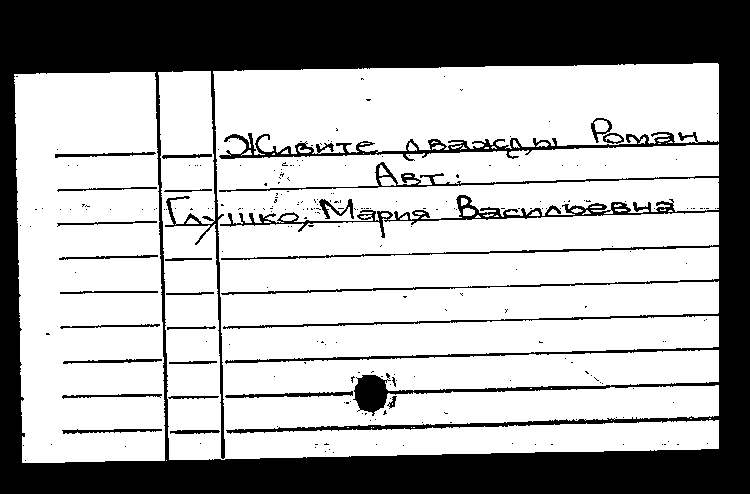 Живите дважды Роман
Авт.:
Глушко, Мария Васильевна